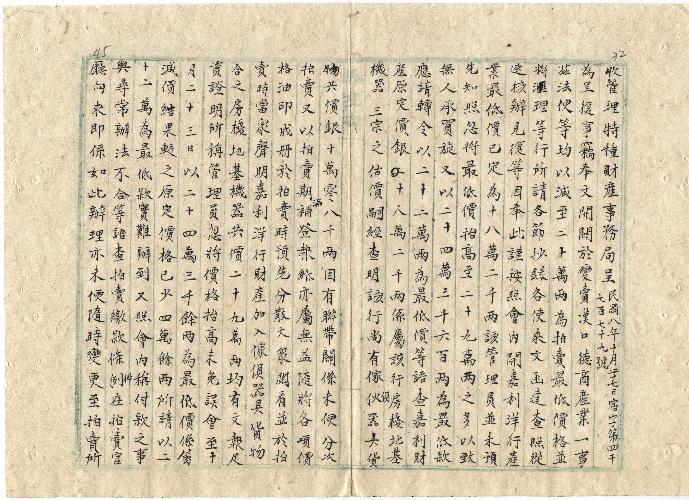 收管理特種財產事務局呈民國八年十月二十七日會字第四千七百七十九號
為呈復事竊奉文開關於變賣漢口德商產業一事
茲法使等均以減至二十萬兩為拍賣最低價格並
擬理等行所請各節抄錄各使來文函達查照從
速核辦見復等因奉此謹按照會內開嘉利洋行產
業最低價已定為十八萬二千兩該管理員並未預
先知照忽將最低價抬高至二十九萬兩之多以致
無人承買旋又以二十四萬三千六百兩為最低款
應請轉令以二十二萬兩為最低價等語查嘉利財
產原定價銀十八萬二千兩係屬該行房棧地基
機器三宗之估價嗣經查明該行尚有傢伙器具貨
物共價銀十萬零八千兩因有聯帶關係未便分次
拍賣又以拍賣期滿辦亦屬無益隨將各項價
格油印成冊於拍賣時預先分散大眾閱看並於拍
賣時當眾聲明嘉利洋行財產加入傢俱器具貨物
合之房棧地基機器共價二十九萬兩均有文報足
資證明所稱管理員忽將價格抬高未免誤會至十
月二十三日以二十四萬三千餘兩為最低價係屬
減價結果較之原定價格已少四萬餘兩所請以二
十二萬為最低款實難辦到又照會內稱付款之事
與尋常辦法不合等語查拍賣繳款條例在拍賣官
廳向來即係如此辦理亦未便隨時變更至拍賣所
45